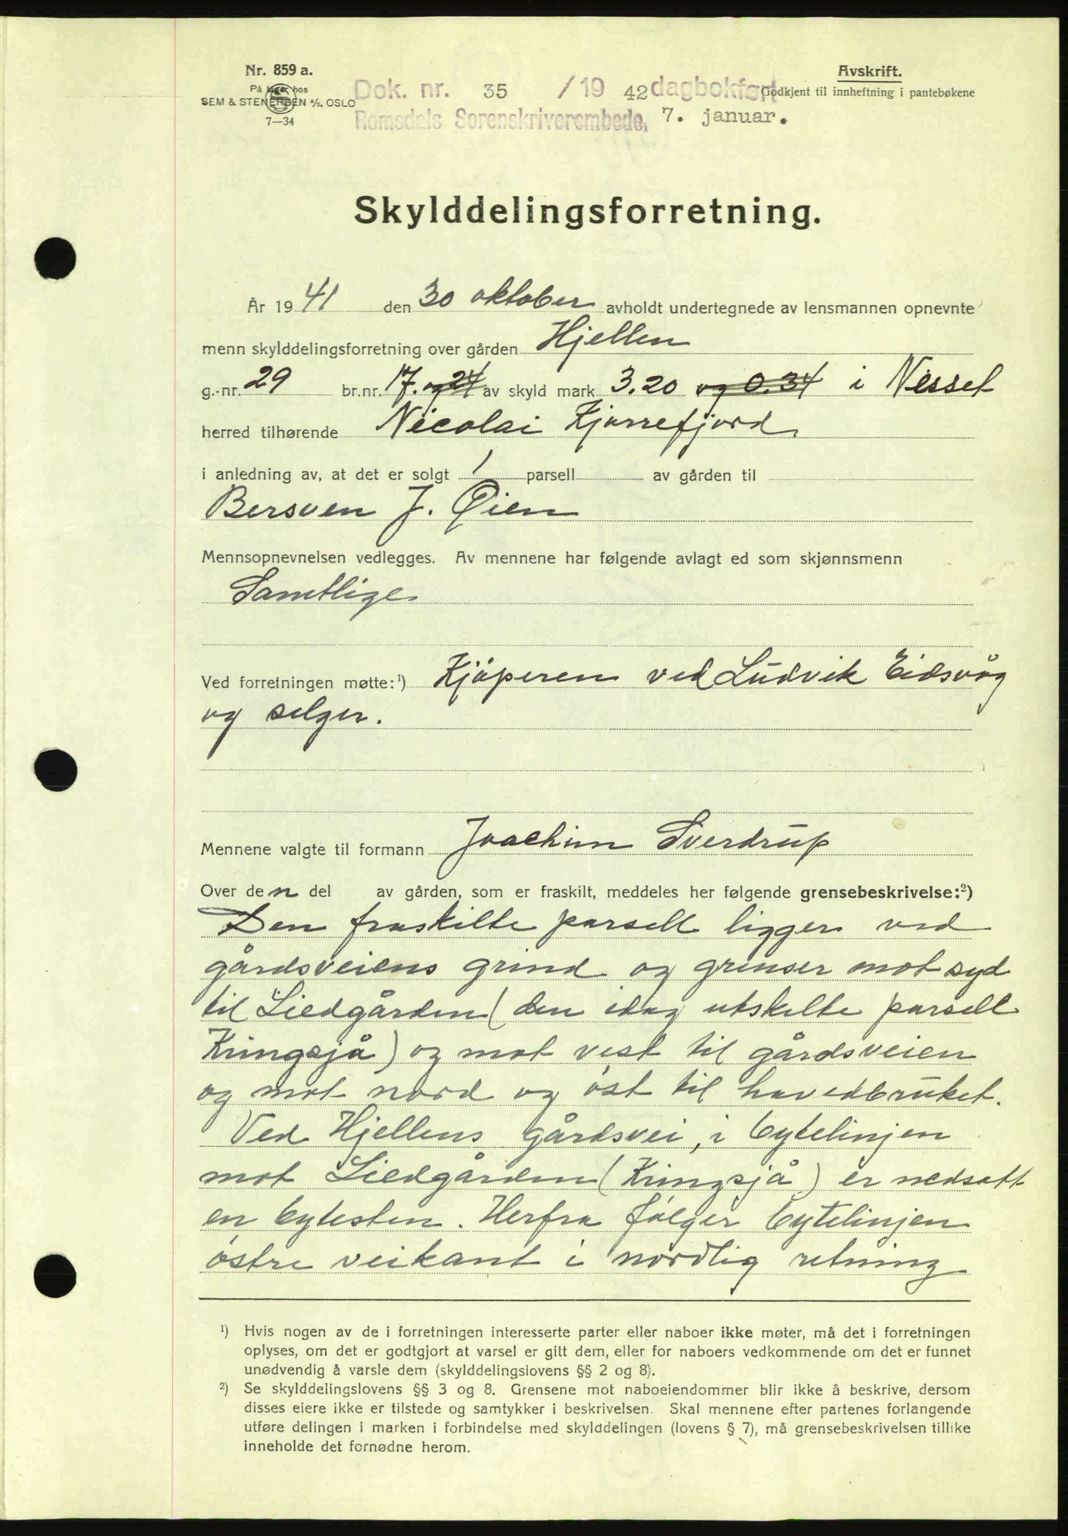 Nr. 859 a.
På lager hos
SEM & STENERSEN A/S, OSLO
7—34
Avskrift.
Godkjent til innheftning i pantebøkene
Dok. nr. 35 /19 42 dagbokført
Romsdals Sorenskriverembede, 7. januar.
Skylddelingsforretning.
År 19 41 den 30 oktober avholdt undertegnede av lensmannen opnevnte
menn skylddelingsforretning over gården Hjellen
g.-nr. 29 br.nr. 17. og 24 av skyld mark 3.20 og 0.34 i Nesset
herred tilhørende Nicolai Kjørrefjord
i anledning av, at det er solgt 1 parsell av gården til
Bersven J. Øien
Mennsopnevnelsen vedlegges. Av mennene har følgende avlagt ed som skjønnsmenn
Samtlige
Ved forretningen møtte:¹) Kjöperen ved Ludvik Eidsvåg
og selger.
Mennene valgte til formann Joachim Sverdrup
Over den del av gården, som er fraskilt, meddeles her følgende grensebeskrivelse:²)
Den fraskilte parsell ligger ved
gårdsveiens grind og grenser mot syd
til Liedgården (den idag utskilte parsell
Kringsjå) og mot vest til gårdsveien
og mot nord og öst til hovedbruket.
Ved Hjellens gårdsvei, i bytelinjen
mot Liedgården (Kringsjå) er nedsatt
en bytesten. Herfra fölger bytelinjen
östre veikant i nordlig retning
¹) Hvis nogen av de i forretningen interesserte parter eller naboer ikke møter, må det i forretningen
oplyses, om det er godtgjort at varsel er gitt dem, eller for naboers vedkommende om det er funnet
unødvendig å varsle dem (skylddelingslovens §§ 2 og 8).
²) Se skylddelingslovens §§ 3 og 8. Grensene mot naboeiendommer blir ikke å beskrive, dersom
disses eiere ikke er tilstede og samtykker i beskrivelsen. Skal mennene efter partenes forlangende
utføre delingen i marken i forbindelse med skylddelingen (lovens § 7), må grensebeskrivelsen tillike
inneholde det fornødne herom.